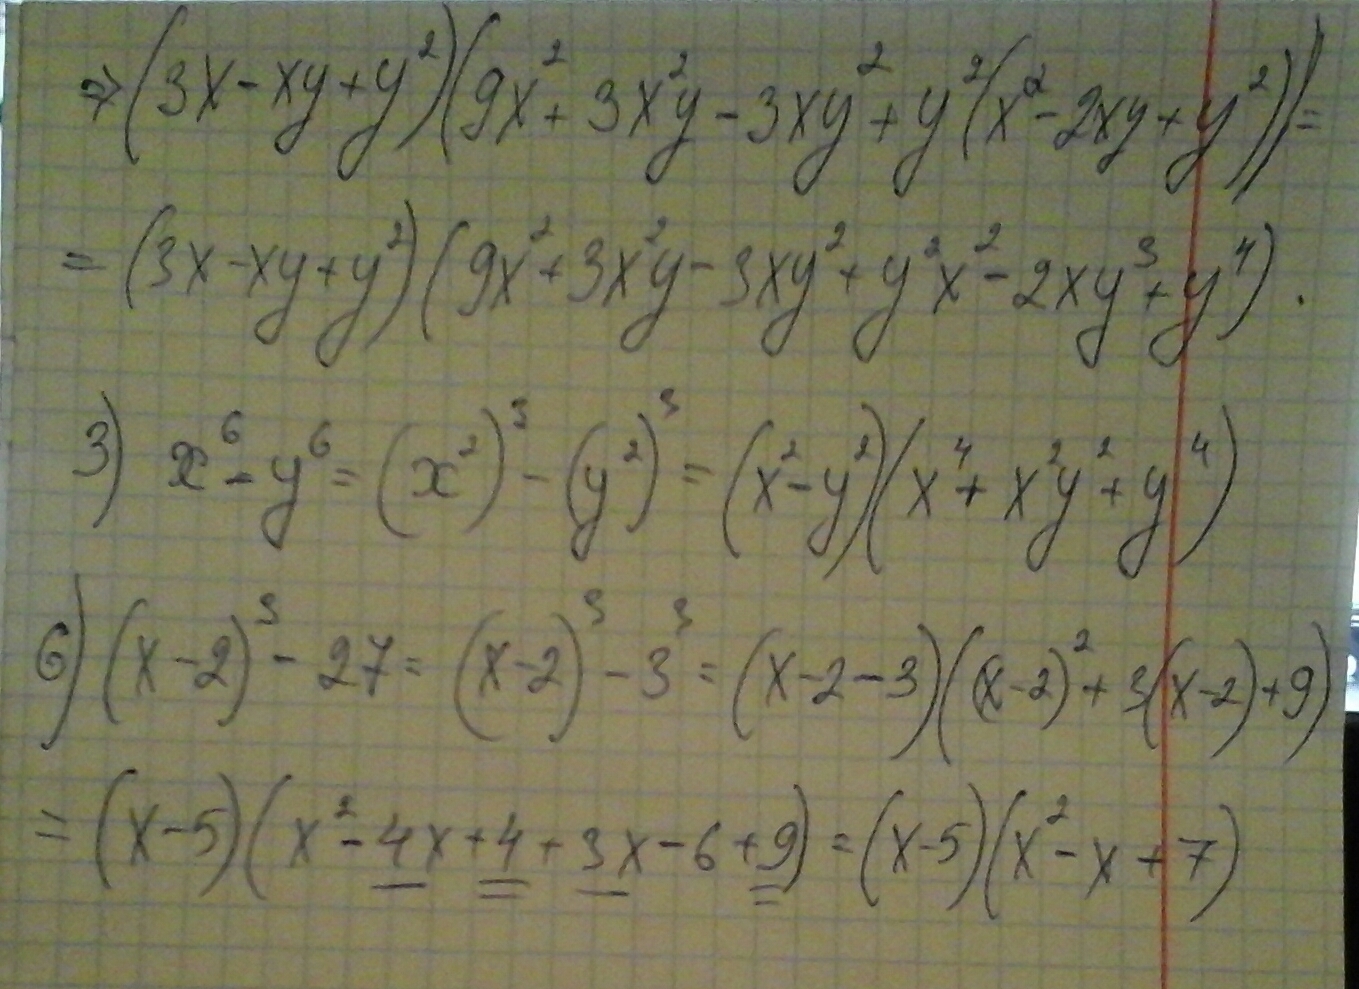 => (3x - xy + y²)(9x² + 3x²y - 3xy² + y²(x² - 2xy + y²)) =
= (3x - xy + y²)(9x² + 3x²y - 3xy² + y²x² - 2xy³ + y⁴).
3) x⁶ - y⁶ = (x²)³ - (y²)³ = (x² - y²)(x⁴ + x²y² + y⁴)
6) (x - 2)³ - 27 = (x - 2)³ - 3³ = (x - 2 - 3)((x - 2)² + 3(x - 2) + 9)
= (x - 5)(x² - 4x + 4 + 3x - 6 + 9) = (x - 5)(x² - x + 7)